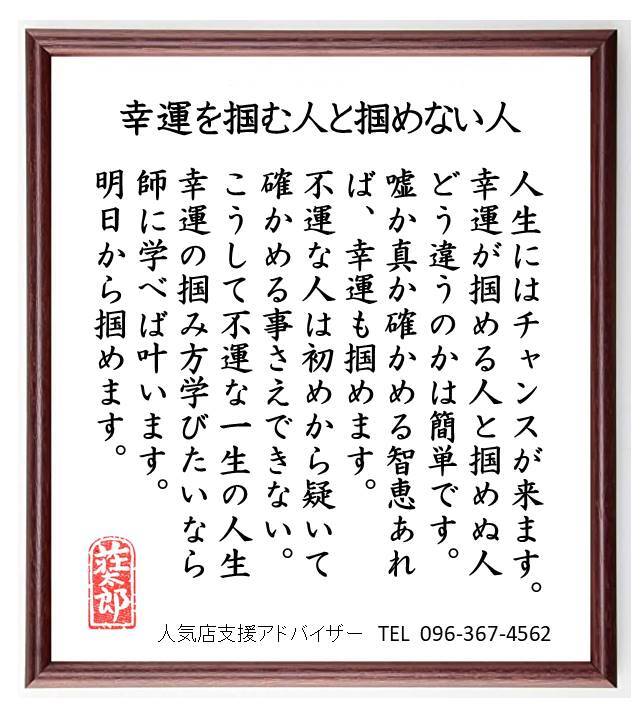 幸運を掴む人と掴めない人
人生にはチャンスが来ます。
幸運が掴める人と掴めぬ人
どう違うのかは簡単です。
嘘か真か確かめる智恵あれ
ば、幸運も掴めます。
不運な人は初めから疑いて
確かめる事さえできない。
こうして不運な一生の人生
幸運の掴み方学びたいなら
師に学べば叶います。
明日から掴めます。
荘太郎
人気店支援アドバイザー TEL 096-367-4562